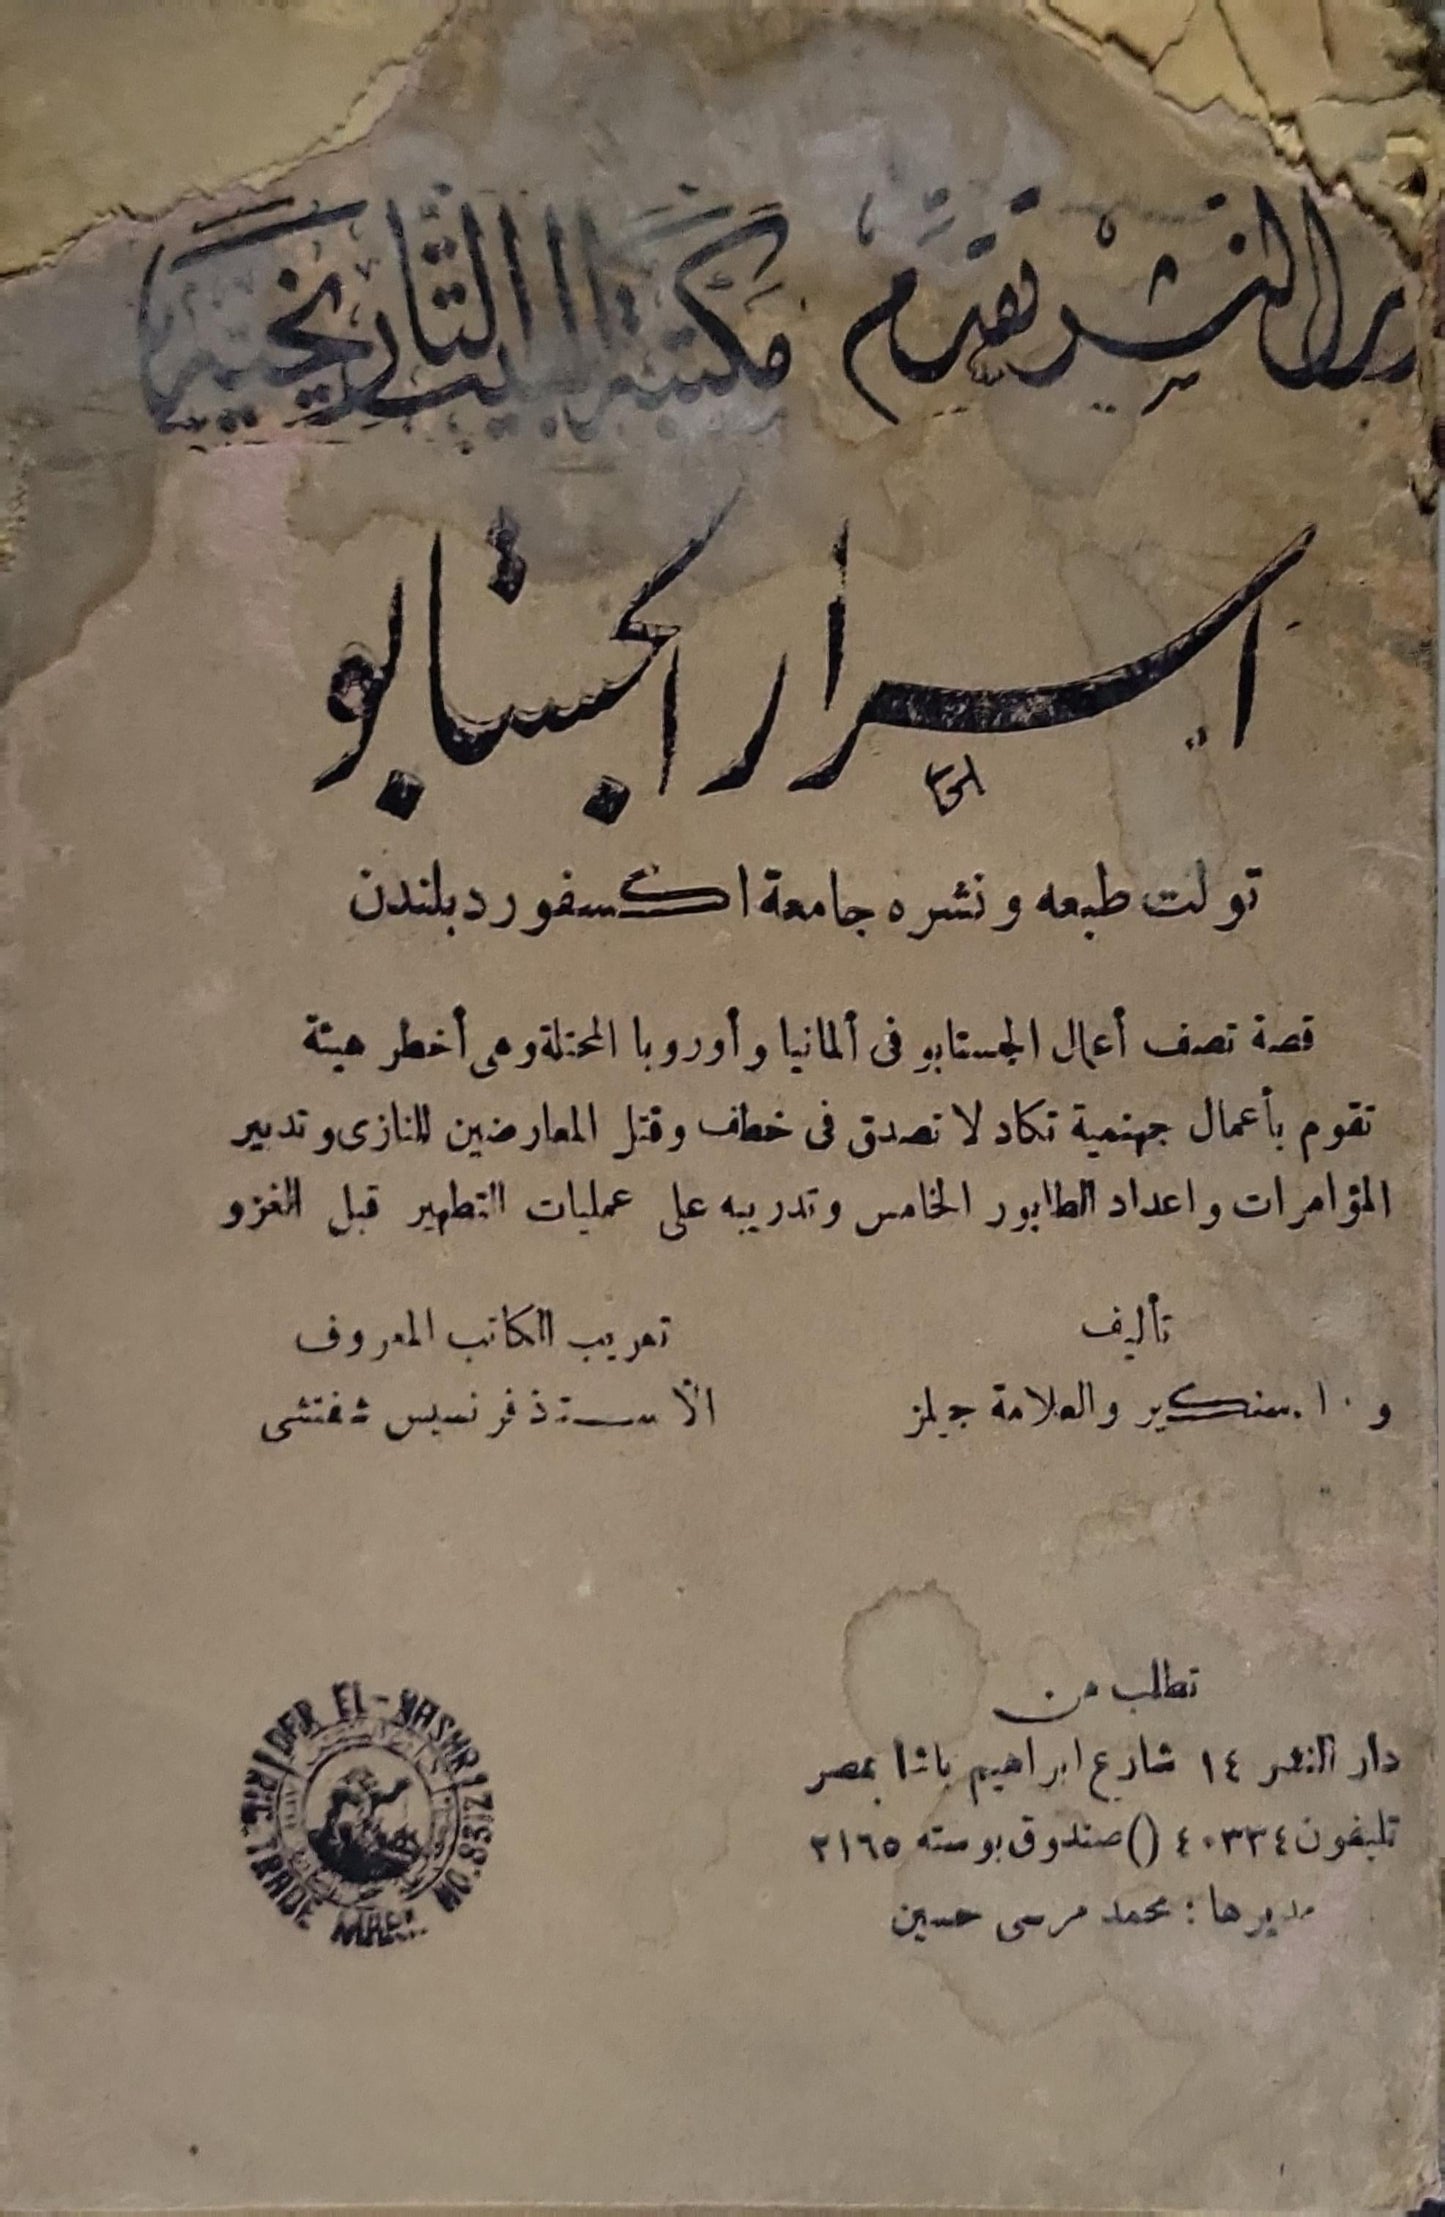 دار النشر تقدم مكتبة البيت التاريخية
اسرار الجستابو
تولت طبعه ونشره جامعة اكسفورد بلندن
قصة تصف أعمال الجستابو فى ألمانيا وأوروبا المحتلة وهى أخطر هيئة
تقوم بأعمال جهنمية تكاد لا تصدق فى خطف وقتل المعارضين للنازى وتدبير
المؤامرات واعداد الطابور الخامس وتدريبه على عمليات التطهير قبل الغزو
تأليف
و . ا . سنكير والعلامة جيلز
تعريب الكاتب المعروف
الأستاذ فرنسيس شفتشى
تطلب من
دار النشر ١٤ شارع ابراهيم باشا بمصر
تليفون ٤٠٣٣٤ () صندوق بوسته ٢١٦٥
مديرها : محمد مرسى حسين
DAR EL-NASHR
TRADE MARK